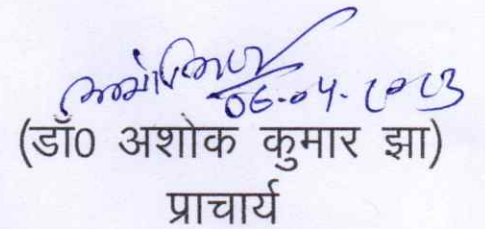 06-04-2013
(डॉ0 अशोक कुमार झा)
प्राचार्य